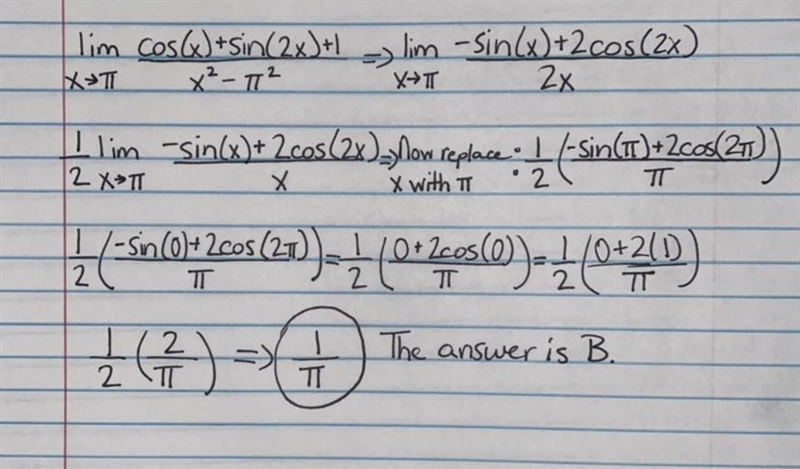 lim x→π (cos(x)+sin(2x)+1)/(x² − π²) ⇒ lim x→π (−sin(x)+2cos(2x))/(2x)
1/2 lim x→π (−sin(x)+2cos(2x))/x ⇒ Now replace x with π : 1/2 ((−sin(π)+2cos(2π))/π)
1/2 ((−sin(0)+2cos(2π))/π) = 1/2 ((0+2cos(0))/π) = 1/2 ((0+2(1))/π)
1/2 (2/π) ⇒ 1/π The answer is B.